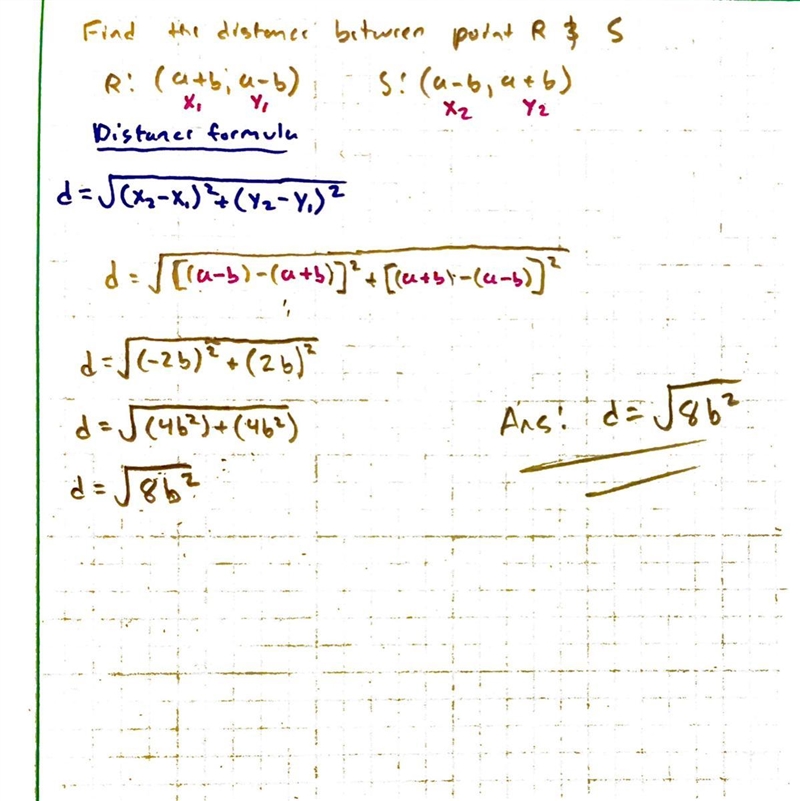 Find the distance between point R & S
R: (a+b, a-b)   S: (a-b, a+b)
x₁ y₁ x₂ y₂
Distance formula
d = √(x₂-x₁)² + (y₂-y₁)²
d = √[(a-b)-(a+b)]² + [(a+b)-(a-b)]²
d = √(-2b)² + (2b)²
d = √(4b²)+(4b²)
Ans: d = √8b²
d = √8b²